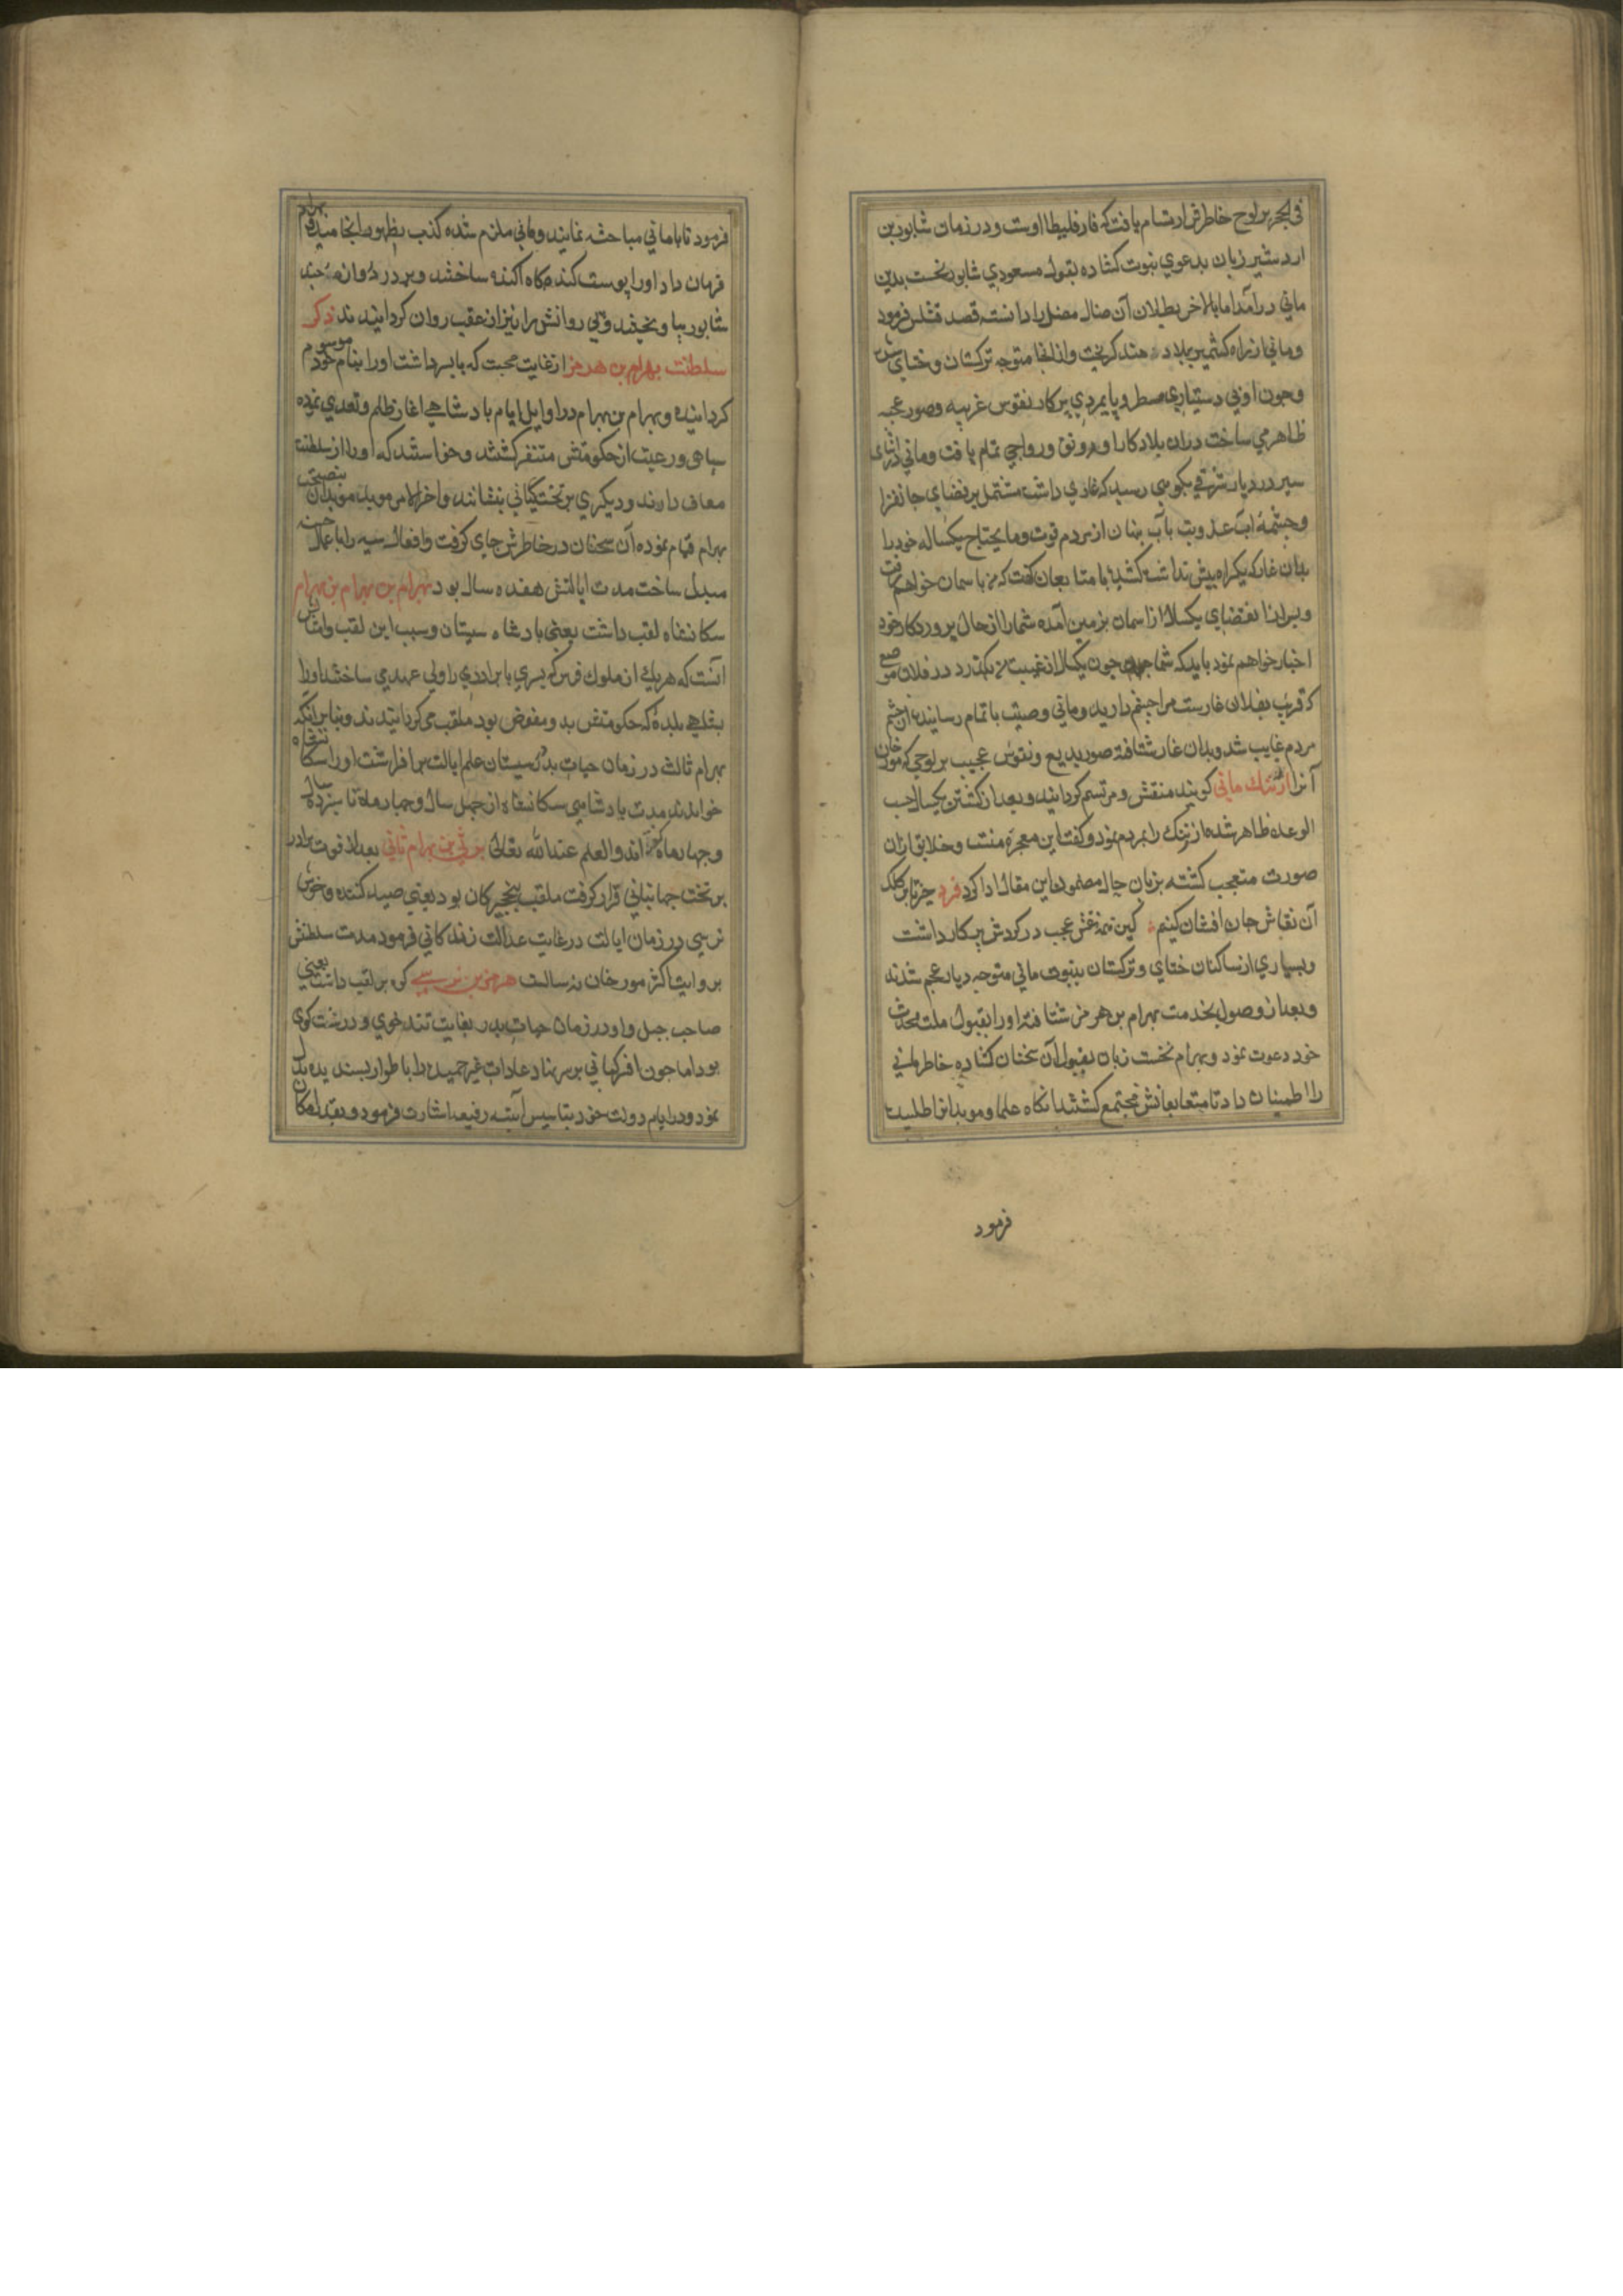 فی الحجر بر لوح خاطرش ارتسام یافت که فارقلیطا اوست و در زمان شابور بن
اردشیر زبان بدعوی نبوت کشاده بقول مسعودی شابور نخست بدین
مانی درآمد اما بالاخر بطلان آن ضال مضل را دانسته قصد قتلش فرمود
و مانی از راه کشمیر ببلاد هند کریخت و از انجا متوجه ترکستان و ختای شد
و چون او بی دستیاری مسطر و پایمردی پرکار نقوش غریبه و صور عجیبه
ظاهر می ساخت دران بلاد کار او رونق و رواجی تمام یافت و مانی در اثنای
سیر در دیار شرقی بکوهی رسید که غاری داشت مشتمل بر فضای جانفزا
و چشمهٔ آب عذوبت مآب پنهان از مردم قوت و ما یحتاج یکساله خود را
بدان غار که یکراه بیش نداشت کشید با متابعان کفت که من باسمان خواهم رفت
و بعد از انقضای یکسال از اسمان بزمین آمده شما را از حال پروردکار خود
اخبار خواهم نمود باید که شما چون یکسال از غیبت من بکذرد در فلان موضع
که قریب بفلان غارست مرا چشم دارید و مانی وصیت باتمام رسانیده از چشم
مردم غایب شد و بدان غار شتافته صور بدیع و نقوش عجیب بر لوحی که مورخان
آنرا ارتنک مانی کویند منقش و مرتسم کردانید و بعد از کذشتن یکسال حسب
الوعده ظاهر شده ارتنک را بمردم نمود و کفت این معجزه منست و خلایق از ان
صورت متعجب کشته بزبان حال مضمون این مقال ادا کرد فرد خیز تا بر کلک
آن نقاش جان افشان کنیم کین همه نقش عجب در کردش پرکار داشت
و بسیاری از ساکنان ختای و ترکستان بنبوت مانی متوجه دیار عجم شدند
و بعد از وصول بخدمت بهرام بن هرمز شتافته او را بقبول ملت محدث
خود دعوت نمود و بهرام نخست زبان بقبول آن سخنان کشاده خاطر مانی
را اطمینان داد تا متعابعانش مجتمع کشتند انکاه علما و موبدانرا طلبیده
فرمود
فرمود تا با مانی مباحثه نمایند و مانی ملزم شده کذب بظهور انجامید بهرام
فرمان داد او را پوست کنده بکاه آکنده ساختند و بر در دروازه جند
شابور بیاویختند و بی روانش را نیز از عقب روان کردانیدند ذکر
سلطنت بهرام بن هرمز از غایت محبت که با پسر داشت او را بنام خود موسوم
کردانیده و بهرام بن بهرام در اوایل ایام بادشاهی اغاز ظلم و تعدی نموده
سپاهی و رعیت از حکومتش متنفر کشتند و خواستند که او را از سلطنت
معاف دارند و دیکری بر تخت کیانی بنشانند و اخر الامر موبد موبدان بنصیحت
بهرام قیام نموده آن سخنان در خاطرش جای کرفت و افعال سیه را باعمال حسنه
مبدل ساخت مدت ایالتش هفده سال بود بهرام بن بهرام بن بهرام
سکانشاه لقب داشت یعنی بادشاه سیستان و سبب این لقب
آنست که هر یک از ملوک فرس که پسری یا برادری را ولی عهدی ساختند او را
بشاهی بلدهٔ که حکومتش بدو مفوض بود ملقب می کردانیدند و بنا بر انکه
بهرام ثالث در زمان حیات پدر سیستان علم ایالت برافراشت او را سکانشاه
خواندند مدت بادشاهی سکانشاه از چهل سال و چهار ماه تا سیزده سال
و چهار ماه کفته اند و العلم عند الله تعالی نرسی بن بهرام ثانی بعد از فوت برادر
بر تخت جهانبانی قرار کرفت ملقب بنخجیرکان بود یعنی صید کننده وحوش
نرسی در زمان ایالت در غایت عدالت زندکانی فرمود مدت سلطنتش
بروایت اکثر مورخان نه سالست هرمز بن نرسی کوه بر لقب داشت یعنی
صاحب جبل و او در زمان حیات پدر بغایت تند خوی و درشت کوی
بود اما چون افسر کیانی بر سر نهاد عادات غیر حمیده را باطوار پسندیده بدل
نمود و در ایام دولت خود بتاسیس ابنیه رفیعه اشارت فرمود و بقدر امکان